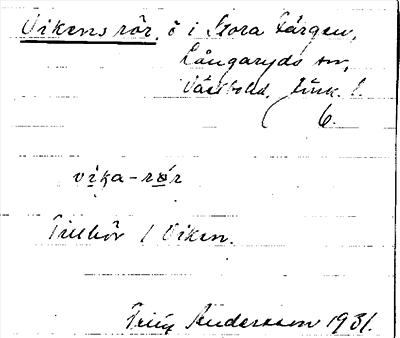 Vikens rör, ö i Stora Färgen,
Långaryds sn,
Västbo hd. Jönk. l.
6.
vika-rör
Tillhör / Viken.
Andersson 1931.